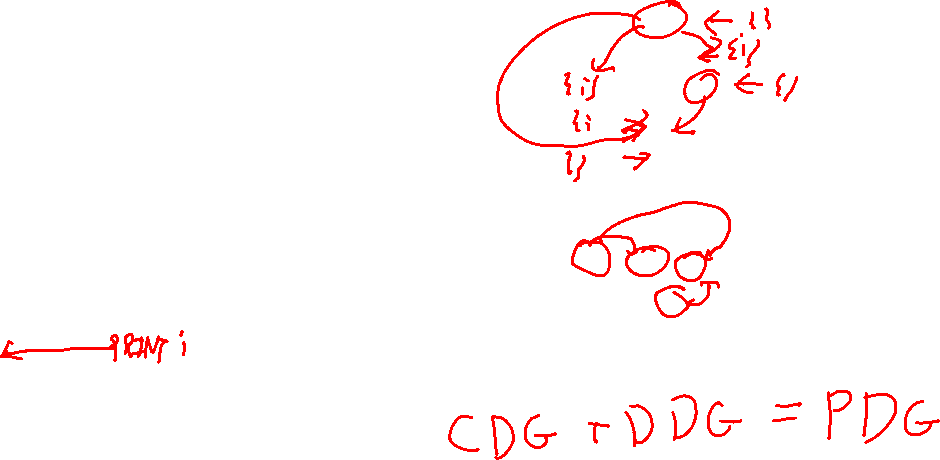 {}
{i}
{i}
{}
{i
{}
PRINT i
CDG + DDG = PDG